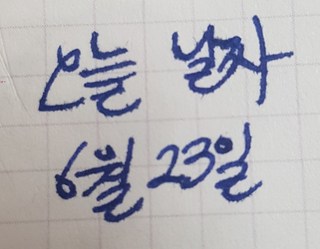 오늘 날자
6월 23일